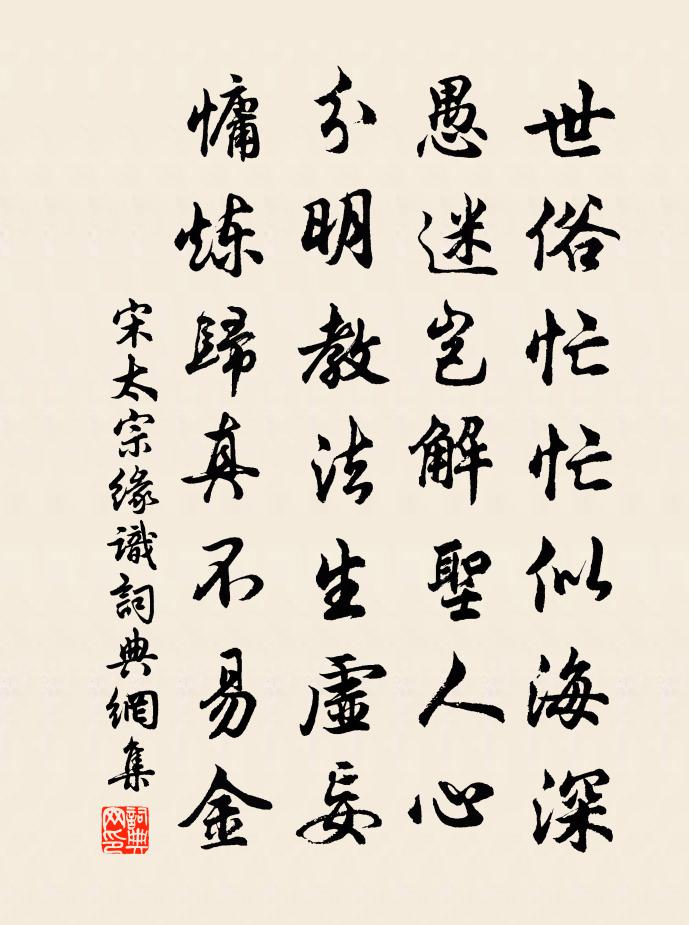 世俗忙忙似海深
愚迷岂解聖人心
分明教法生虛妄
慵炼歸真不易金
宋太宗緣識詞典網集
詞典網印